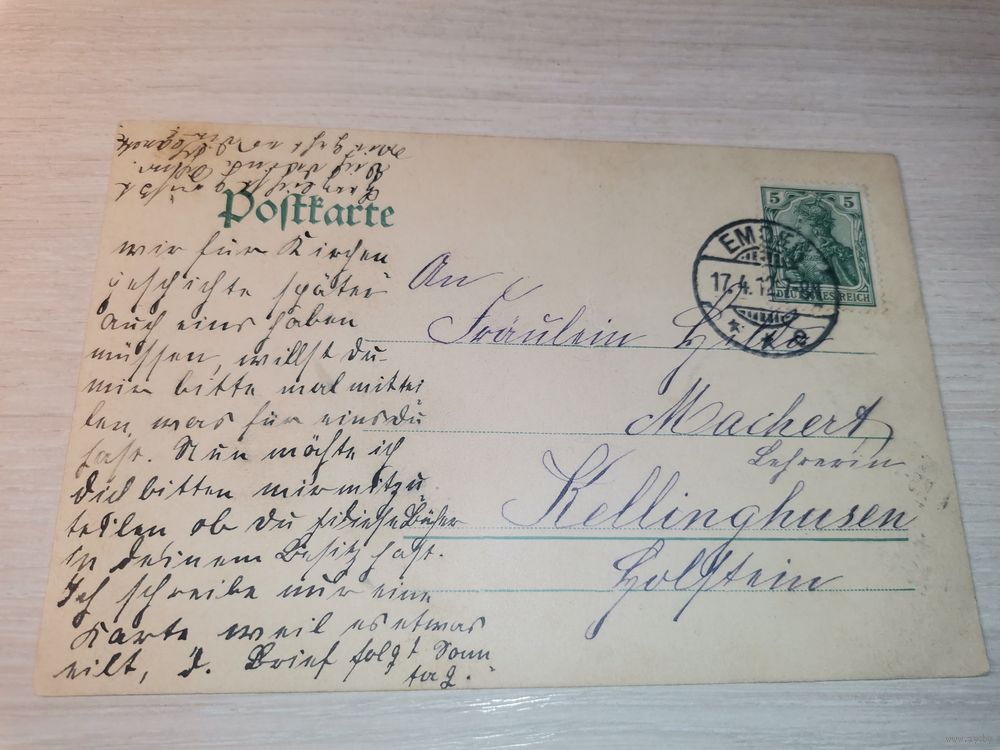 Postkarte
wir für Kirchen
geschichte später
auch eins haben
müssen, willst du
mir bitte mal mittei
len, was für eins du
hast. Nun möchte ich
dich bitten mir mitzu
teilen ob du diese Bücher
in deinem Besitz hast.
Ich schreibe nur eine
Karte weil es etwas
eilt, d. Brief folgt Sonn
tag.
5 5
DEUTSCHES REICH
17.4.12
An
Fräulein
Machert,
Lehrerin
Kellinghusen
Holstein